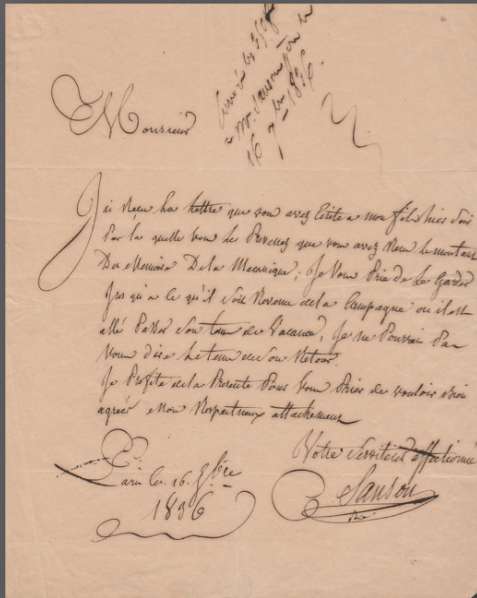 à Mr. Sanson père le
16 7bre 1836.
Monsieur
J'ai Recu La lettre que vous avez Ecrite a mon fils hier Soir
Par la quelle vous Le Prevenez que vous avez Recu le montant
Du Memoire De la Mecanique; Je Vous Prie de Le Garder
Jus qu'a ce qu'il Soit Revenu de la Campagne ou il est
allé Passer Son tems de Vacance, Je ne Pourrai Pas
Vous dire Le tems de son Retour
Je Profite de la Presente Pour Vous Prier de vouloir bien
agréer Mon Respectueux attachement
Votre Serviteur affectionné
Paris le 16 7bre
1836
Sanson